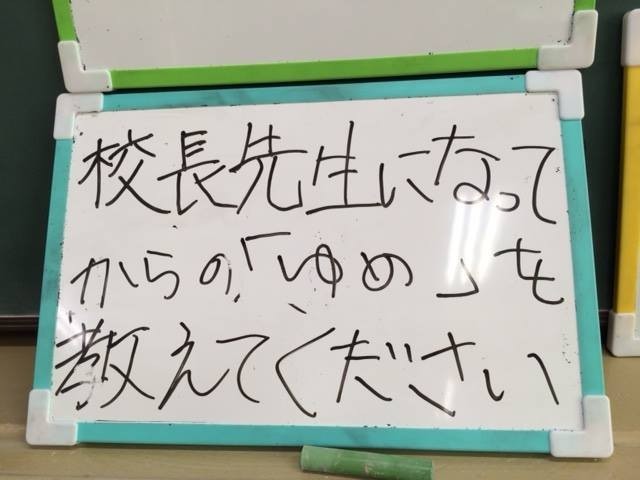 校長先生になって
からの「ゆめ」を
教えてください